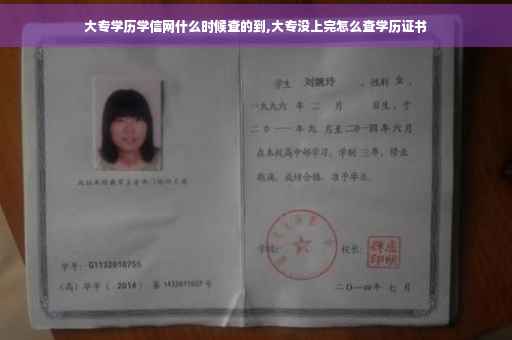 大专学历学信网什么时候查的到,大专没上完怎么查学历证书
学生 刘婉玲 ,性别 女 ,
一九九六 年 二 月 日生,于
二〇一一 年 九 月至 二〇一四 年 六 月
在本校高中部学习,学制 三年,修业
期满,成绩合格,准予毕业。
学号: G1132010755
(高)毕字( 2014 )第 1432011027 号
校长:
二〇一四年 七 月